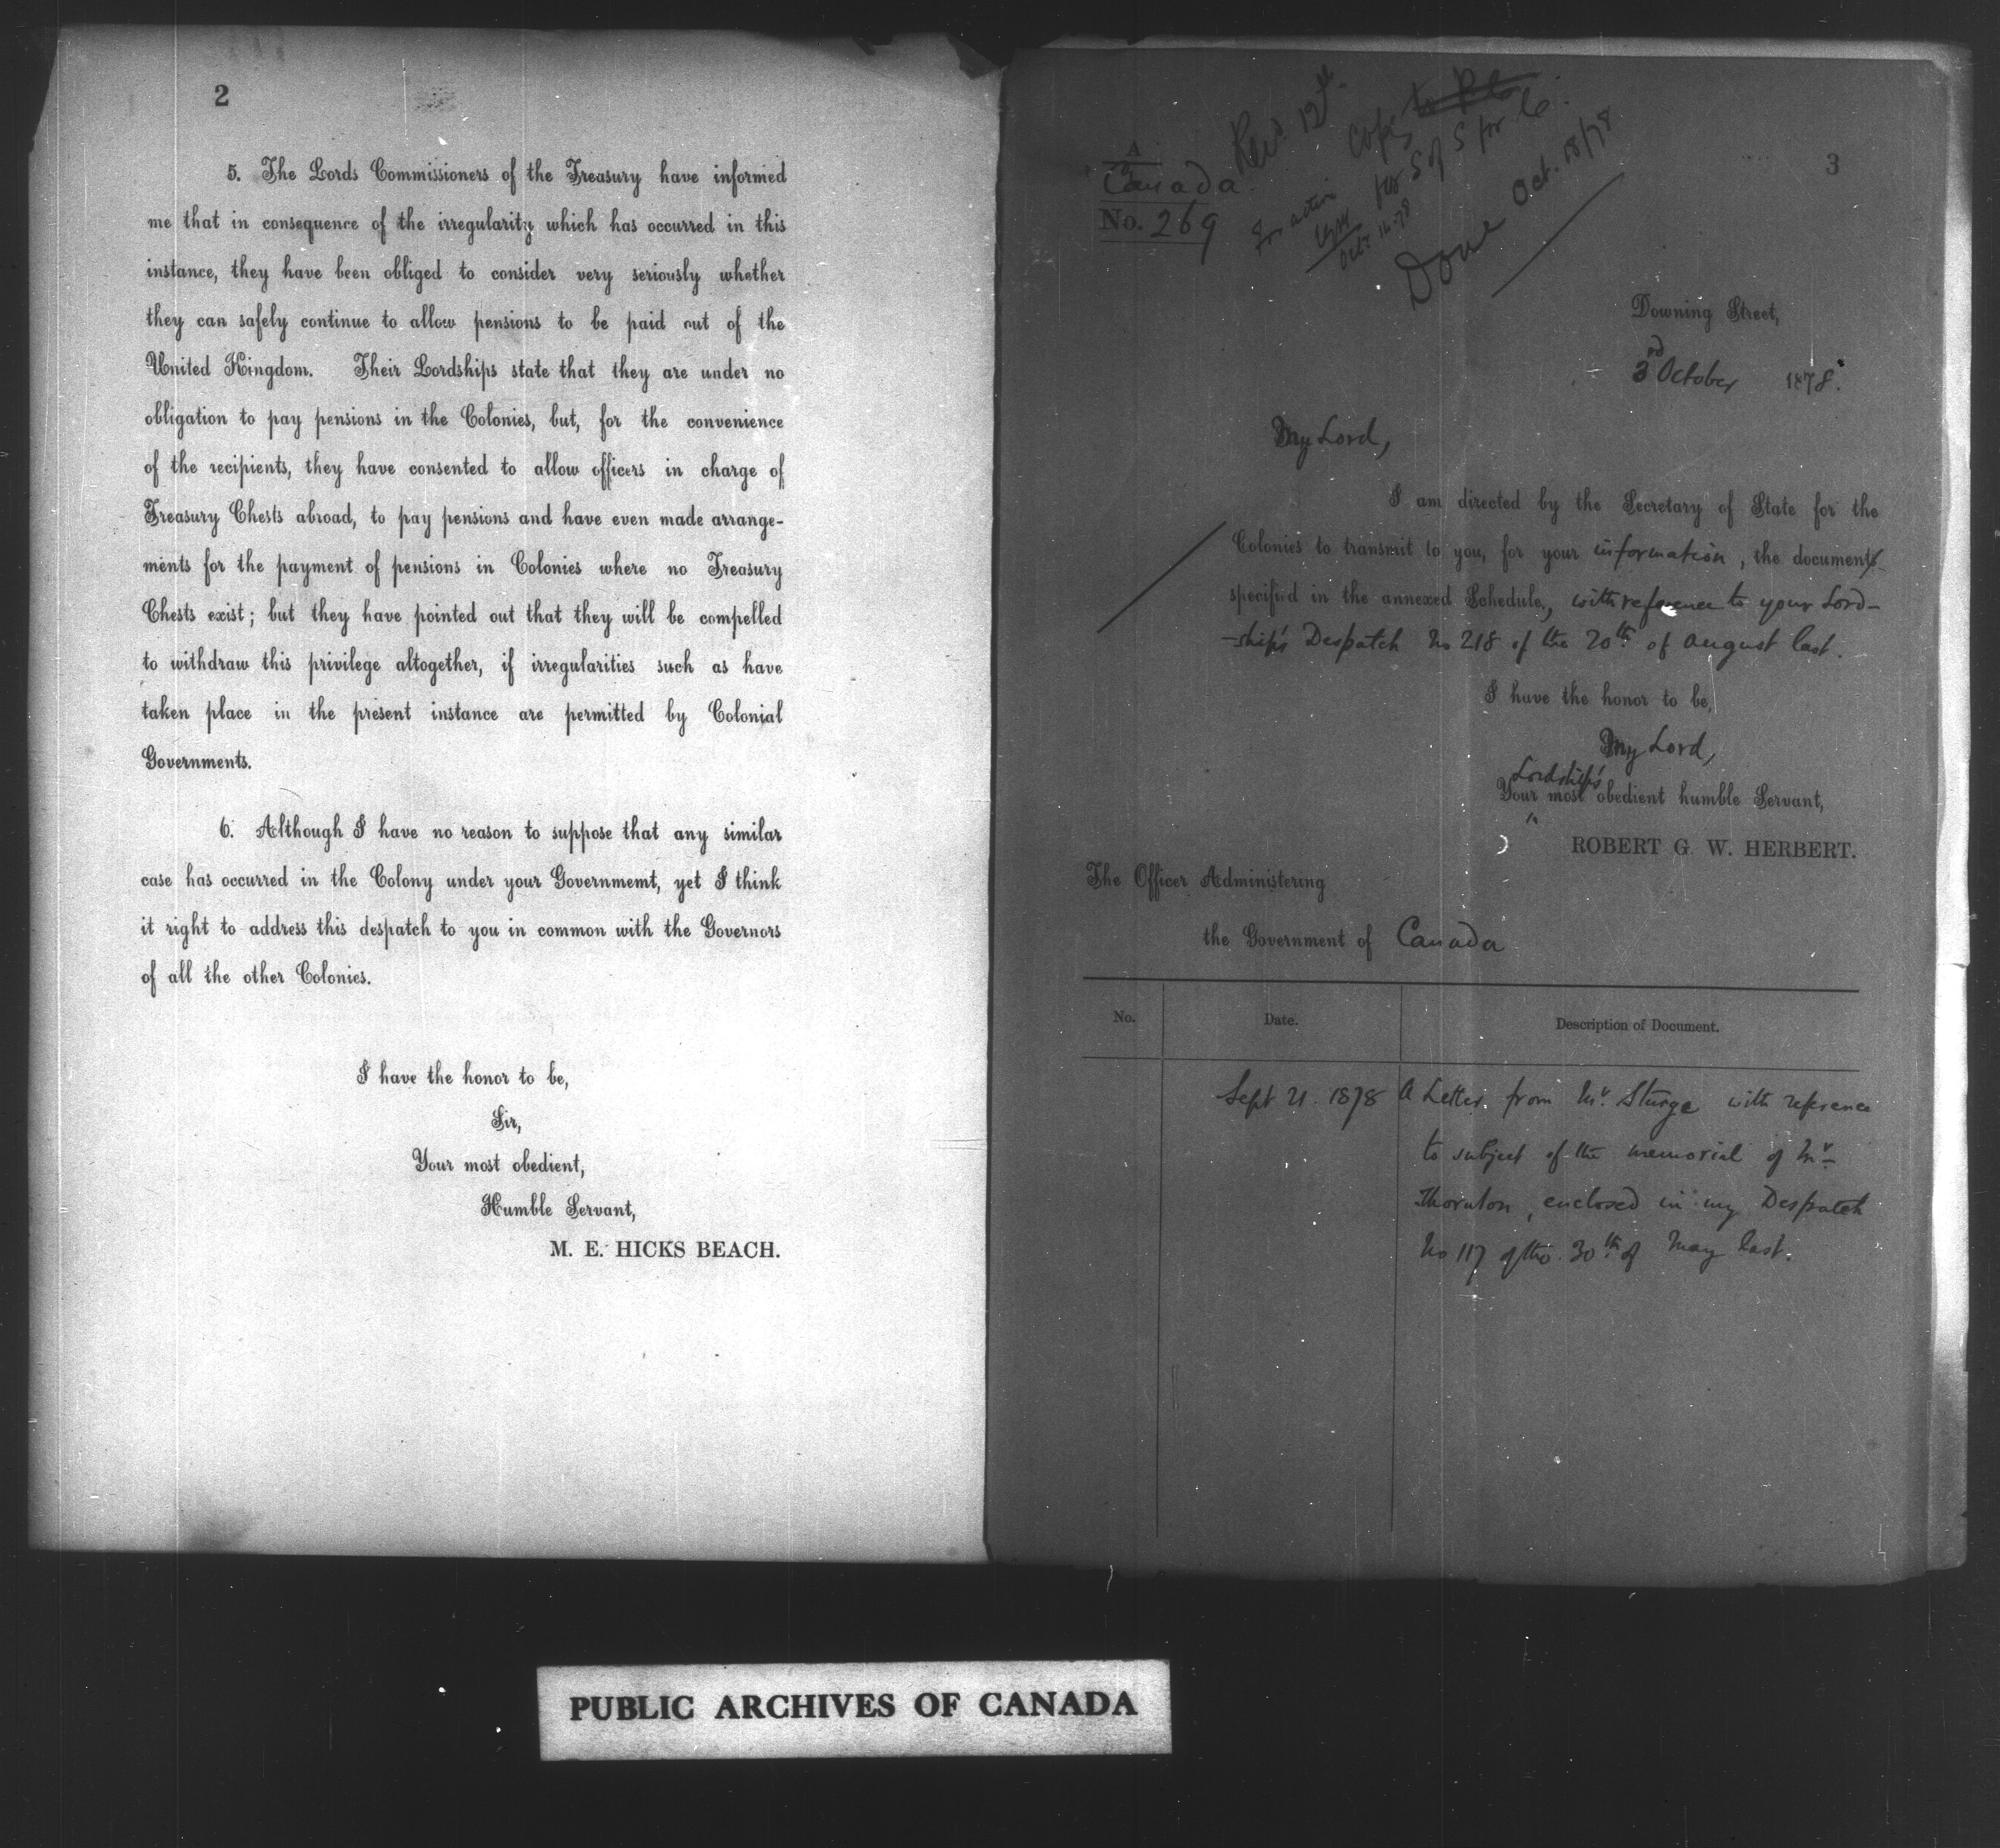 2
5. The Lords Commissioners of the Treasury have informed
me that in consequence of the irregularity which has occurred in this
instance, they have been obliged to consider very seriously whether
they can safely continue to allow pensions to be paid out of the
United Kingdom. Their Lordships state that they are under no
obligation to pay pensions in the Colonies, but, for the convenience
of the recipients, they have consented to allow officers in charge of
Treasury Chests abroad, to pay pensions and have even made arrange-
ments for the payment of pensions in Colonies where no Treasury
Chests exist; but they have pointed out that they will be compelled
to withdraw this privilege altogether, if irregularities such as have
taken place in the present instance are permitted by Colonial
Governments.
6. Although I have no reason to suppose that any similar
case has occurred in the Colony under your Governmemt, yet I think
it right to address this despatch to you in common with the Governors
of all the other Colonies.
I have the honor to be,
Sir,
Your most obedient,
Humble Servant,
M. E. HICKS BEACH.
3
A
Canada
No. 269
Recd. 12th
Copy
for S of S for C.
For action
Oct 16-78
Done Oct. 18/78
Downing Street,
3rd October 1878.
My Lord,
I am directed by the Secretary of State for the
Colonies to transmit to you, for your information, the document
specified in the annexed Schedule, with reference to your Lord-
-ship's Despatch No 218 of the 20th of August last.
I have the honor to be,
My Lord,
Lordship's
Your most obedient humble Servant,
ROBERT G. W. HERBERT.
The Officer Administering
the Government of Canada
No. Date. Description of Document.
Sept 21. 1878 A Letter from Mr. Sturge with reference
to subject of the memorial of Mr.
Thornton, enclosed in my Despatch
No 117 of the 30th of May last.
PUBLIC ARCHIVES OF CANADA